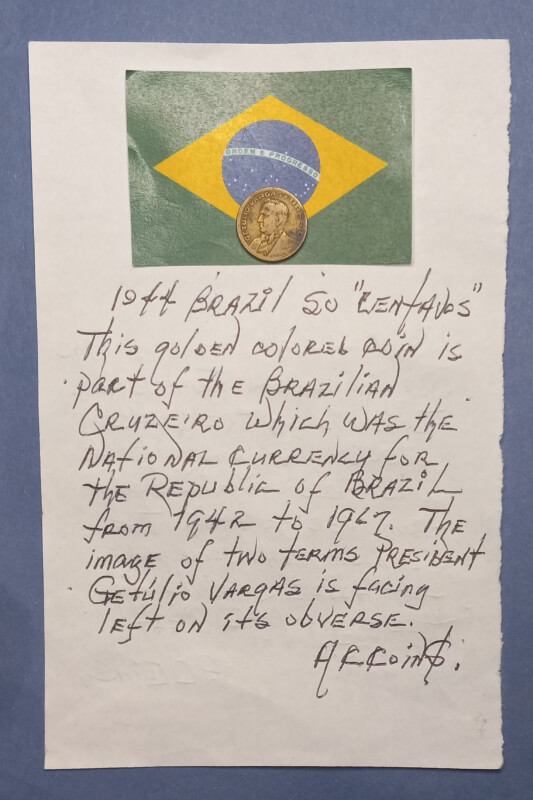 ORDEM E PROGRESSO
GETULIO VARGAS
1944 BRAZIL 50 "CENTAVOS"
This golden colored coin is
part of the BRAZILIAN
CRUZEIRO which was the
NATIONAL CURRENCY FOR
the REPUBLIC of BRAZIL
from 1942 to 1967. The
image of two terms PRESIDENT
GETÚLIO VARGAS is facing
left on it's obverse.
ACCoin$.